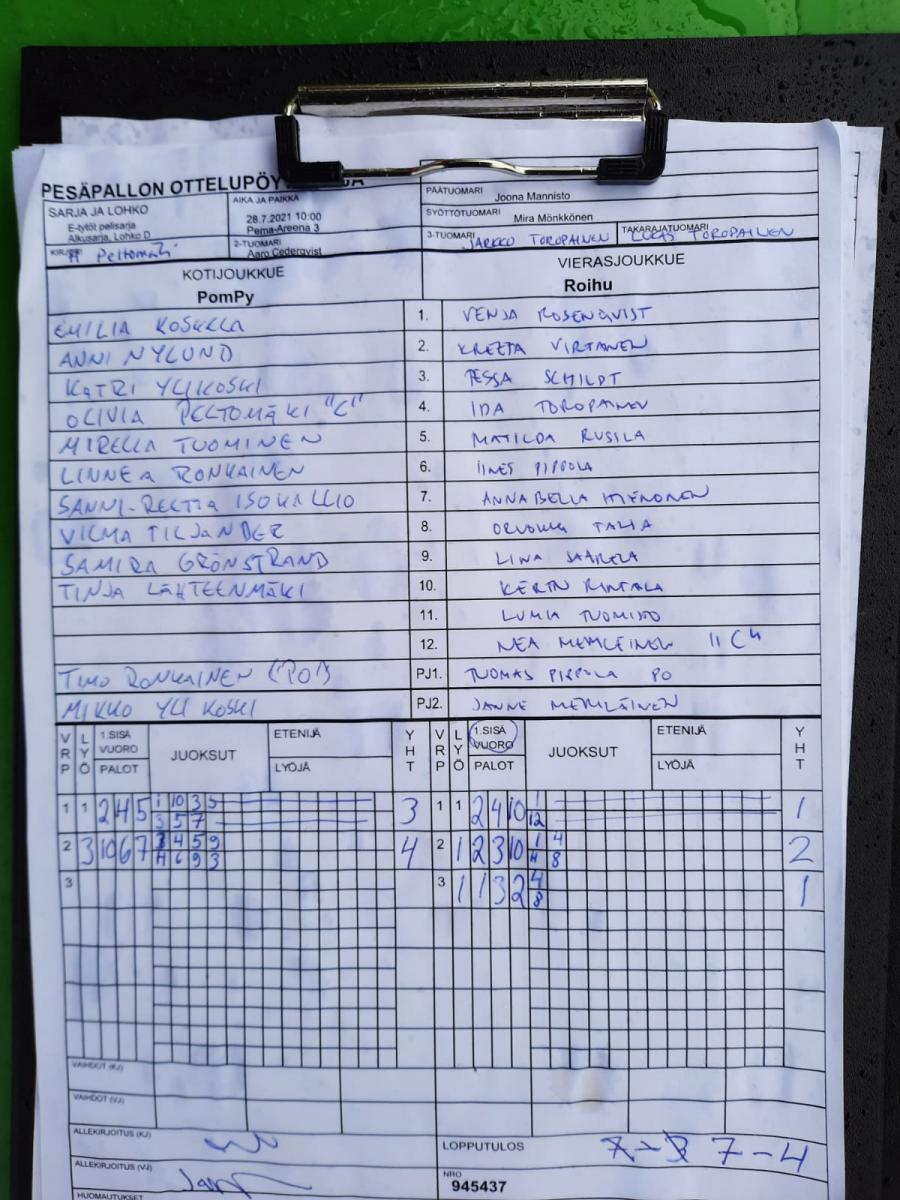 PESÄPALLON OTTELUPÖY
SARJA JA LOHKO
E-tytöt pelisarja
Alkusarja, Lohko D
AIKA JA PAIKKA
28.7.2021 10:00
Pema-Areena 3
PÄÄTUOMARI Joona Mannisto
SYÖTTÖTUOMARI Mira Mönkkönen
KIRJURI Peltomäki
2-TUOMARI Aaro Cederqvist
3-TUOMARI JARKKO TOROPAINEN
TAKARAJATUOMARI LUKAS TOROPAINEN
KOTIJOUKKUE
PomPy
VIERASJOUKKUE
Roihu
EMILIA KOSKELA 1. VENJA ROSENQVIST
ANNI NYLUND 2. KREETA VIRTANEN
KATRI YLIKOSKI 3. TESSA SCHILDT
OLIVIA PELTOMÄKI "C" 4. IDA TOROPAINEN
MIRELLA TUOMINEN 5. MATILDA RUSILA
LINNEA RONKAINEN 6. IINES PIPPOLA
SANNI-REETTA ISOKALLIO 7. ANNABELLA HIENONEN
VILMA TILJANDER 8. TALJA
SAMIRA GRÖNSTRAND 9. LINA SAARELA
TINJA LÄHTEENMÄKI 10. KERTN RINTALA
11. LUMIA TUOMISTO
12. NEA MERILÄINEN "C"
TIMO RONKAINEN ("PO") PJ1. TUOMAS PIPPOLA PO
MIKKO YLIKOSKI PJ2. JANNE MERILÄINEN
VRP LYÖ 1.SISÄ VUORO PALOT JUOKSUT ETENIJÄ LYÖJÄ YHT VRP LYÖ 1.SISÄ VUORO PALOT JUOKSUT ETENIJÄ LYÖJÄ YHT
1 1 2 4 5 1 10 3 5 3 1 1 2 4 10 1 1
3 5 7 12
2 3 10 6 7 3 4 5 9 4 2 1 2 3 10 1 4 2
4 6 9 3 4 8
3 3 1 1 3 2 4 1
8
VAIHDOT (KJ)
VAIHDOT (VJ)
ALLEKIRJOITUS (KJ)
LOPPUTULOS 7-3 7-4
ALLEKIRJOITUS (VJ)
NRO
945437
HUOMAUTUKSET